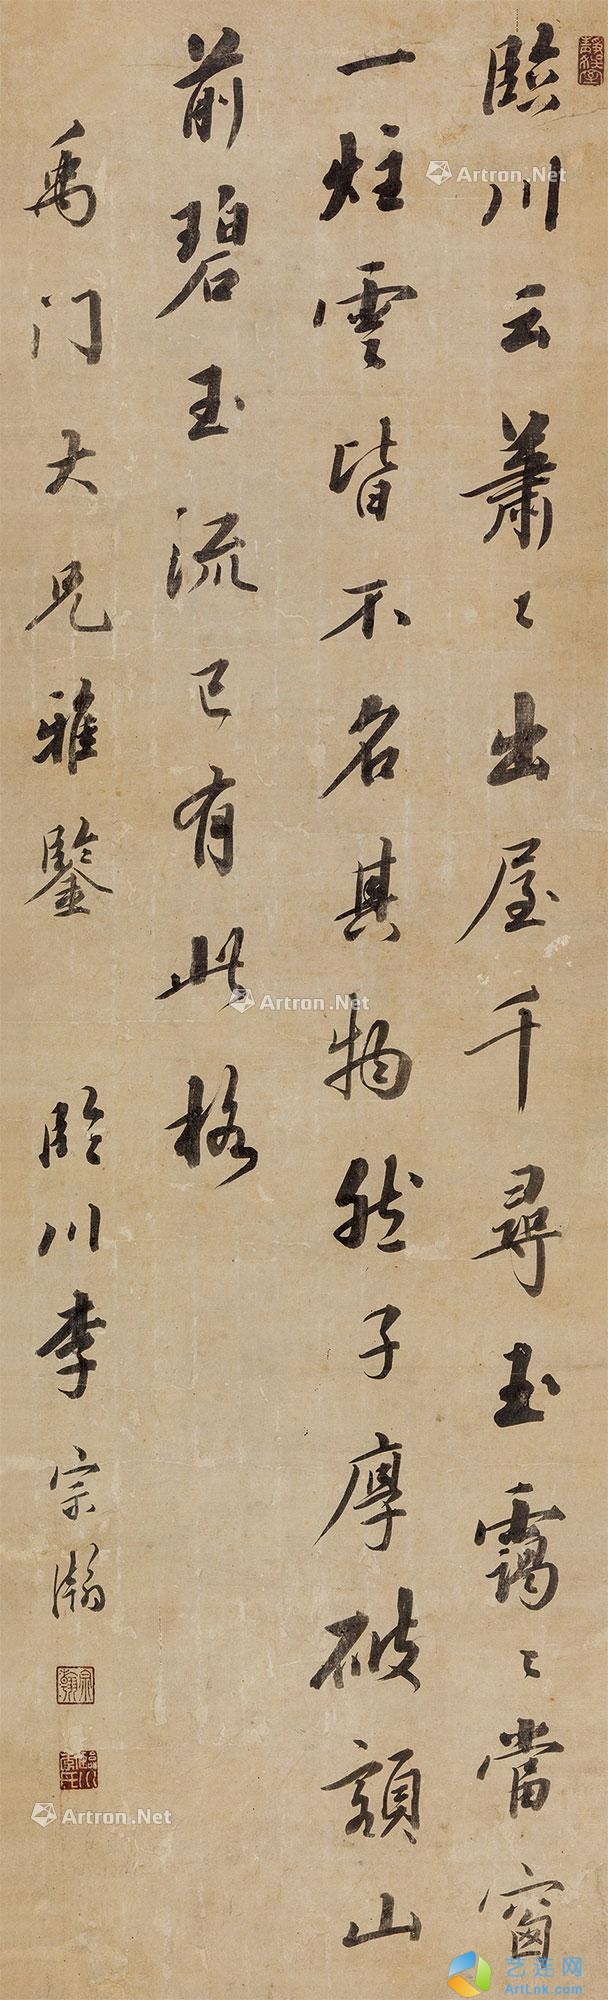 臨川云蕭〻出屋千尋玉靄〻當窗
一炷雲皆不名其物然子厚破額山
前碧玉流已有此格
禹門大兄雅鑒 臨川李宗瀚
宗瀚
臨川李氏
Artron.Net
Artron.Net
Artron.Net
艺连网
ArtLnk.com